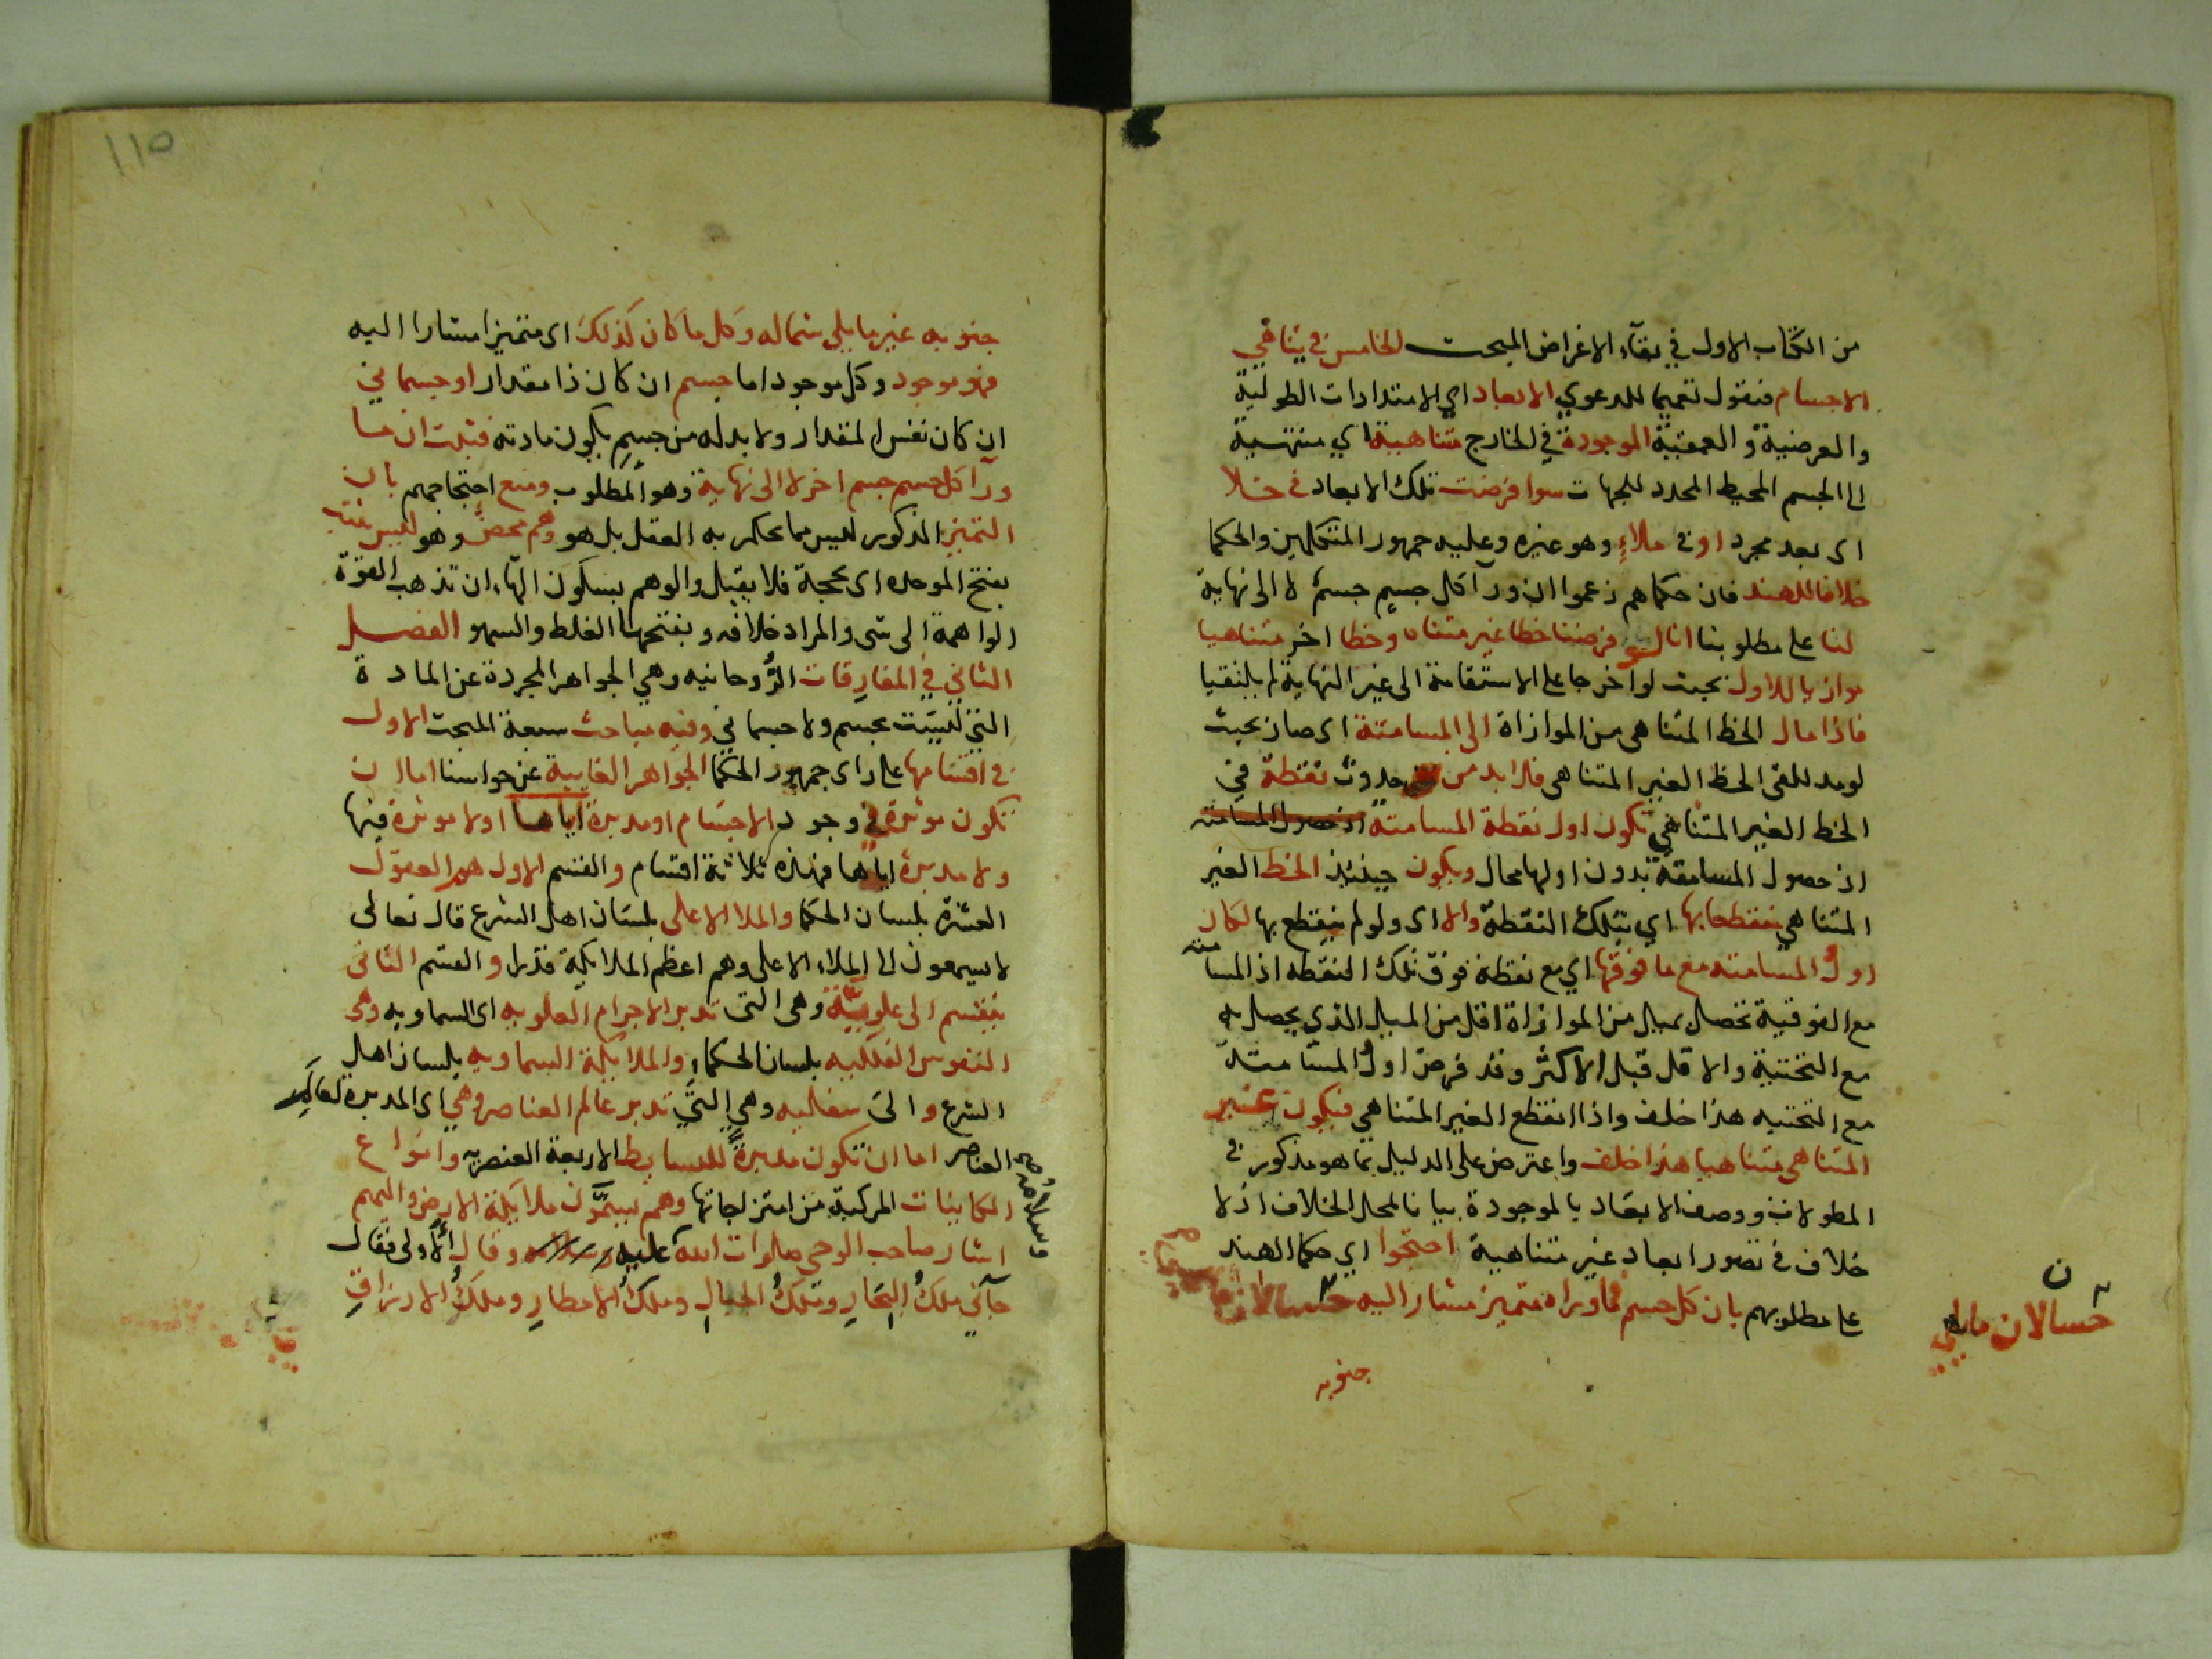 من الكتاب الاول في بقآء الاعراض المبحث الخامس في تناهي
الاجسام فنقول تعميما للدعوي الابعاد اي الامتدادات الطولية
والعرضية و العمقية الموجودة في الخارج متناهية اي منتهية
الى الجسم المحيط المحدد للجهات سوا فرضت تلك الابعاد في خلا
اى بعد مجرد او في ملاءٍ وهو غيره وعليه جمهور المتكلمين والحكما
خلافا للهند فان حكماهم زعموا ان ورآ كل جسمٍ جسمٌ لا الى نهاية
لنا على مطلوبنا انا لو فرضنا خطا غير متناه وخطا اخر متناهيا
موازيا للاول بحيث لو اخرجا على الاستقامة الى غير النهاية لم يلتقيا
فاذا مال الخط المتناهى من الموازاة الى المسامتة اى صار بحيث
لو مد للقى الخط الغير المتناهى فلا بد من حدوث نقطة في
الخط الغير المتناهي تكون اول نقطة المسامتة اذ حصول المسامتة
اذ حصول المسامتة بدون اولها محال ويكون حينئذ الخط الغير
المتناهي منقطعا بها اي بتلك النقطة والا اى ولو لم ينقطع بها لكان
اولُ المسامته مع ما فوقها اي مع نقطة فوق تلك النقطه اذ المسامته
مع الفوقية تحصل بميل من الموازاة اقل من الميل الذي يحصل به
مع التحتية والاقل قبل الاكثر وقد فرض اولُ المسامتة
مع التحتيه هذا خلف واذا انقطع الغير المتناهي فيكون غير
المتناهى متناهيا هذا خلف واعترض على الدليل بما هو مذكور في
المطولات ووصف الابعاد بالموجودة بيانا لمحل الخلاف اذ لا
خلاف في تصور ابعاد غير متناهية احتجوا اي حكما الهند
على مطلوبهم بان كل جسم فماوراه متميز مشار اليه حسا لان
ن
حسا لان مايلي
جنوبه
١١٥
جنوبه غير مايلي شماله وكل ما كان كذلك اى متميزا مشارا اليه
فهو موجود وكل موجود اما جسم ان كان ذا مقدار او جسماني
ان كان نفس المقدار ولا بد له من جسمٍ يكون مادته فثبت ان ما
ورآ كل جسم جسم اخر لا الى نهاية وهو المطلوب ومنع احتجاجهم بان
التميز المذكور ليس مما يحكم به العقل بل هو وهم محضٌ وهو ليس بثبت
بفتح الموحده اى بحجة فلا يقبل والوهم بسكون الهاء ان تذهب القوّة
الواهمة الى شى والمراد خلافه وبفتحها الغلط والسهو الفصل
الثاني في المفارقات الرُّوحانيه وهي الجواهر المجردة عن المادة
التي ليست بجسم ولا جسماني وفيه مباحث سبعة المبحث الاول
في اقسامها على راى جمهور الحكما الجواهر الغايبة عن حواسنا اما ان
تكون موثرة في وجود الاجسام او مدبرة اياها او لا موثرة فيها
ولا مدبرة اياها فهذه ثلاثة اقسام والقسم الاول هو العقول
العشرة بلسان الحكما والملا الاعلى بلسان اهل الشرع قال تعالى
لا يسمعون الى الملاء الاعلى وهم اعظم الملايكة قدرا والقسم الثانى
ينقسم الى علوية وهى التى تدبر الاجرام العلويه اى السماويه وهى
النفوس الفلكيه بلسان الحكماء والملايكة السماويه بلسان اهل
الشرع والى سفليه وهي التي تدبر عالم العناصر وهي اى المدبره لعالم
العناصر اما ان تكون مدبرةً للبسايط الاربعة العنصريه وانواع
الكاينات المركبة من امتزاجاتها وهم يسمَّون ملايكة الارض واليهم
اشار صاحب الوحى صلوات الله عليه وسلامه وقال الاولى فقال
جآني ملكُ البحارِ وملكُ الجبالِ وملكُ الامطارِ وملكُ الارزاقِ
وسلامه